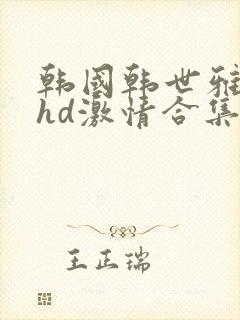 韩国韩世雅
hd激情合集
王正瑞